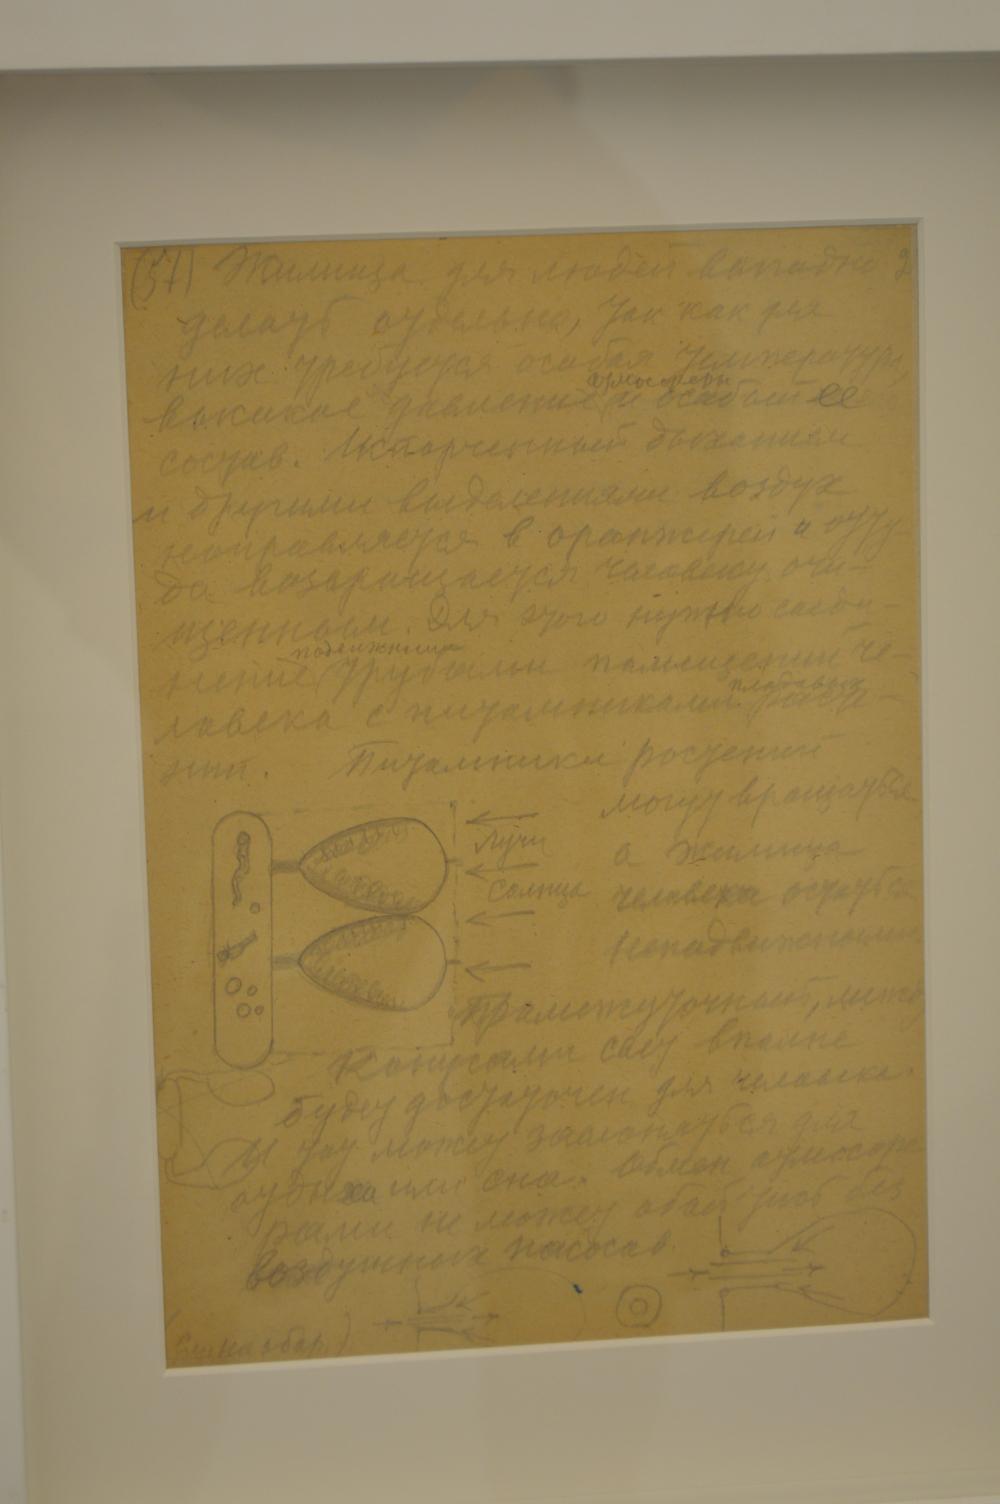 (57) Жилища для людей выгодно 2
делать отдельно, так как для
них требуется особая температура,
давление атмосферы и особый ее
состав. Испорченный дыханием
и другими выделениями воздух
направляется в оранжереи и отту-
да возвращается человеку очи-
щенным. Для этого нужно соеди-
нение подвижными трубами помещений че-
ловека с питомниками плодовых расте-
ний. Питомники растений
могут вращаться
а жилища
человека остаться
неподвижными
Лучи
солнца
Промежуточный, между
конусами свет вполне
будет достаточен для человека.
И тот может заслоняться для
отдыха или сна. Обмен атмосфе-
рами не может обойтись без
воздушных насосов.
(См на обор.)